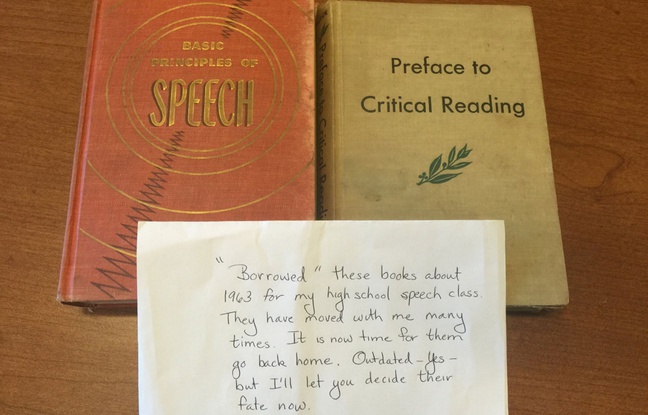 BASIC
PRINCIPLES OF
SPEECH
Preface to
Critical Reading
Preface to Critical Reading
"Borrowed" these books about
1963 for my high school speech class.
They have moved with me many
times. It is now time for them
go back home. Outdated - Yes -
but I'll let you decide their
fate now.